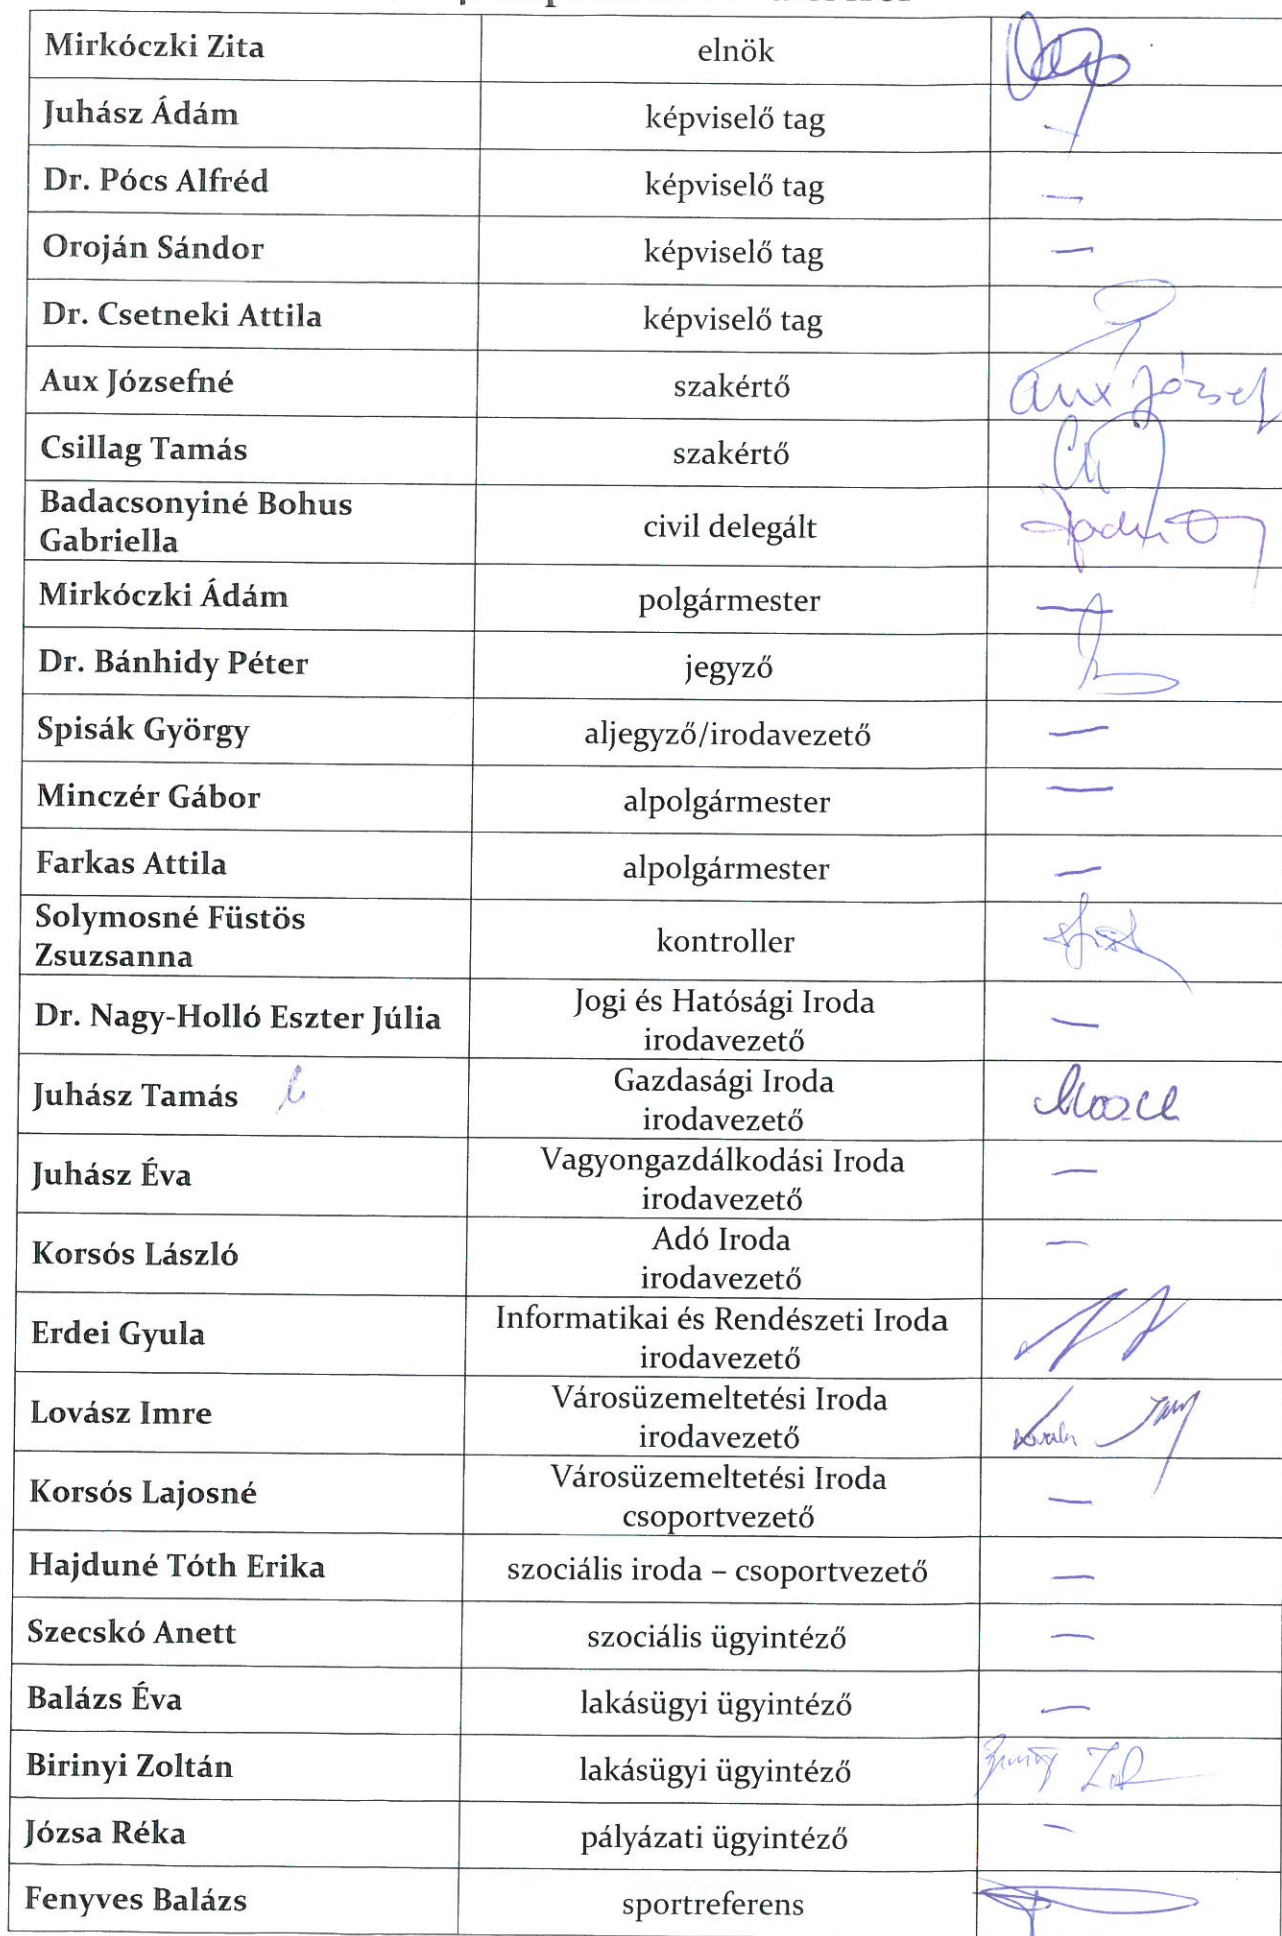 Mirkóczki Zita
elnök
Juhász Ádám
képviselő tag
—
Dr. Pócs Alfréd
képviselő tag
—
Oroján Sándor
képviselő tag
—
Dr. Csetneki Attila
képviselő tag
Aux Józsefné
szakértő
Aux József
Csillag Tamás
szakértő
Badacsonyiné Bohus
Gabriella
civil delegált
Mirkóczki Ádám
polgármester
—
Dr. Bánhidy Péter
jegyző
Spisák György
aljegyző/irodavezető
—
Minczér Gábor
alpolgármester
—
Farkas Attila
alpolgármester
—
Solymosné Füstös
Zsuzsanna
kontroller
Dr. Nagy-Holló Eszter Júlia
Jogi és Hatósági Iroda
irodavezető
—
Juhász Tamás
Gazdasági Iroda
irodavezető
Juhász Éva
Vagyongazdálkodási Iroda
irodavezető
—
Korsós László
Adó Iroda
irodavezető
—
Erdei Gyula
Informatikai és Rendészeti Iroda
irodavezető
Lovász Imre
Városüzemeltetési Iroda
irodavezető
Korsós Lajosné
Városüzemeltetési Iroda
csoportvezető
—
Hajduné Tóth Erika
szociális iroda – csoportvezető
—
Szecskó Anett
szociális ügyintéző
—
Balázs Éva
lakásügyi ügyintéző
—
Birinyi Zoltán
lakásügyi ügyintéző
Józsa Réka
pályázati ügyintéző
—
Fenyves Balázs
sportreferens